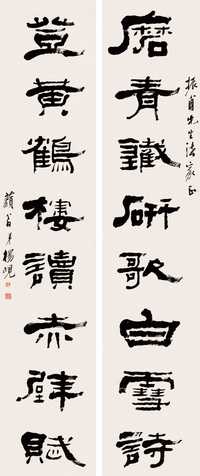 振甫先生法家正
磨青鐵研歌白雪詩
登黃鶴樓讀赤壁賦
藐翁弟楊峴